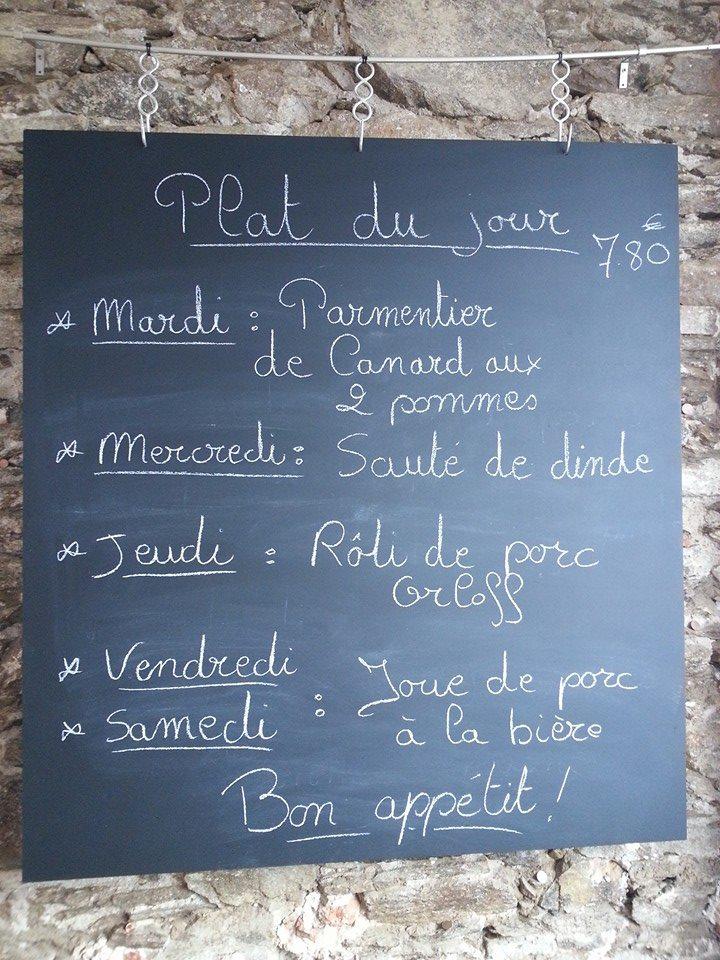 Plat du jour
7.80 €
* Mardi : Parmentier
de Canard aux
2 pommes
* Mercredi : Sauté de dinde
* Jeudi : Rôti de porc
Orloff
* Vendredi
* Samedi : Joue de porc
à la bière
Bon appétit !